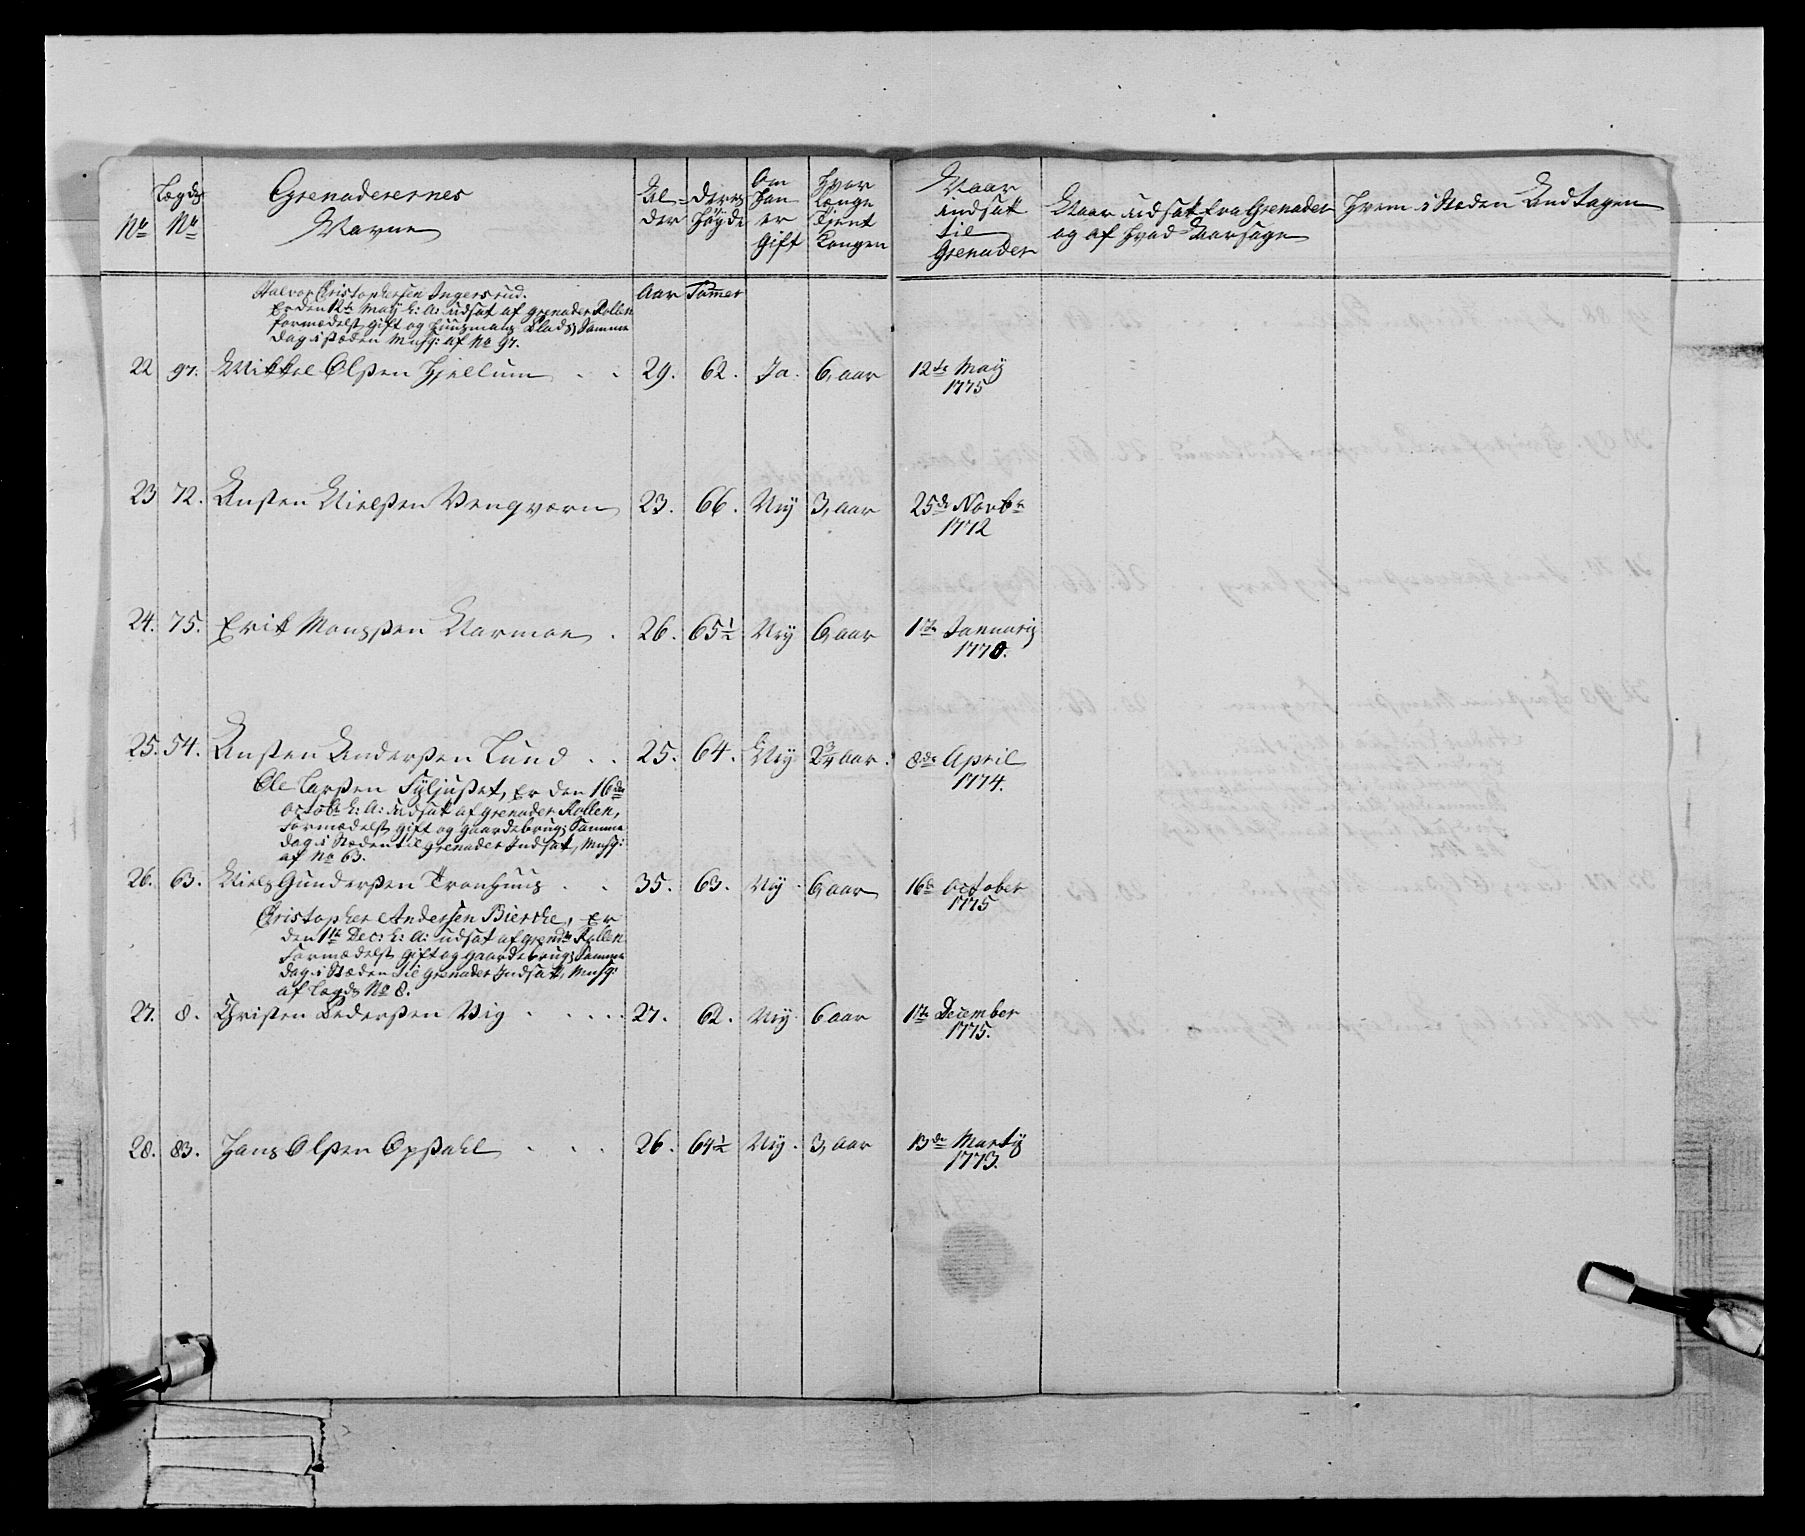 No
Lægds
No
Grenaderernes
Navne
Al=
der
Deres
Høyde
Om
Han
er
Gift
Hvor
Længe
Tient
Kongen
Naar
indsatt
til
Grenader
Naar udsat fra Grenader
og af Hvad Aarsage
Hvem i Stæden Andtagen
Halvor Christophersen Ingersrud.
Er den 12te May h: a: udsat af grenader Rollen
formedelst gift og Huusmands Plads, Samme
dag i stæden Musq: af No 97.
Aar Tommer
22 97. Mikkel Olsen Hjellum 29. 62. Ja. 6, aar 12te May
1775
23 72. Ansten Nielsen Vengværn 23. 66. Ney 3, aar 25de Novbr
1772
24. 75. Erik Monssen Aarmoe. 26. 65½ Ney 6, aar 1te Januarij
1770.
25. 54. Ansten Andersen Lund 25. 64. Ney 2¾ aar. 8de April
1774.
Ole Larsen Syljuset, Er den 16de
octob: h: A: udsat af grenader Rollen,
Formedelst gift og gaardebrug, Samme
dag i Stæden til grenader Indsat, Musq:
af No 63.
26. 63. Niels Gundersen Tronhuus 35. 63. Ney. 6, aar 16de october
1775
Christopher Andersen Biercke, Er
den 1te Dec: h: A: udsat af grendr Rollen
Formedelst gift og gaardebrug, Samme
dag i Stæden til grenader Indsat, Musq:
af Lægds No 8.
27. 8. Christen Pedersen Vig 27. 62. Ney 6 aar 1te December
1775.
28. 83. Hans Olsen Opsahl 26. 64½ Ney. 3, aar 13de Martij
1773.